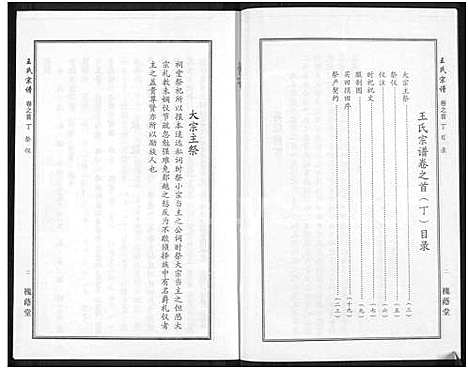 王氏宗谱
卷之首 丁 目录
一
槐荫堂
王氏宗谱卷之首（丁）目录
大宗主祭……（二）
祭仪……（五）
仪注……（六）
时祀祝文……（七）
服制图……（九）
买田捐田序……（十九）
祭产契约……（二三）
王氏宗谱
卷之首 丁 祭仪
二
槐荫堂
大宗主祭
祠堂祭祀所以报本追远私祠时祭小宗当主之公祠时祭大宗当主之但恐大
宗礼教未娴仪节疏忽勉强难免鄙越之愆反为不敬须择族中有名爵礼仪者
主之盖贵尊贤亦所以励族人也